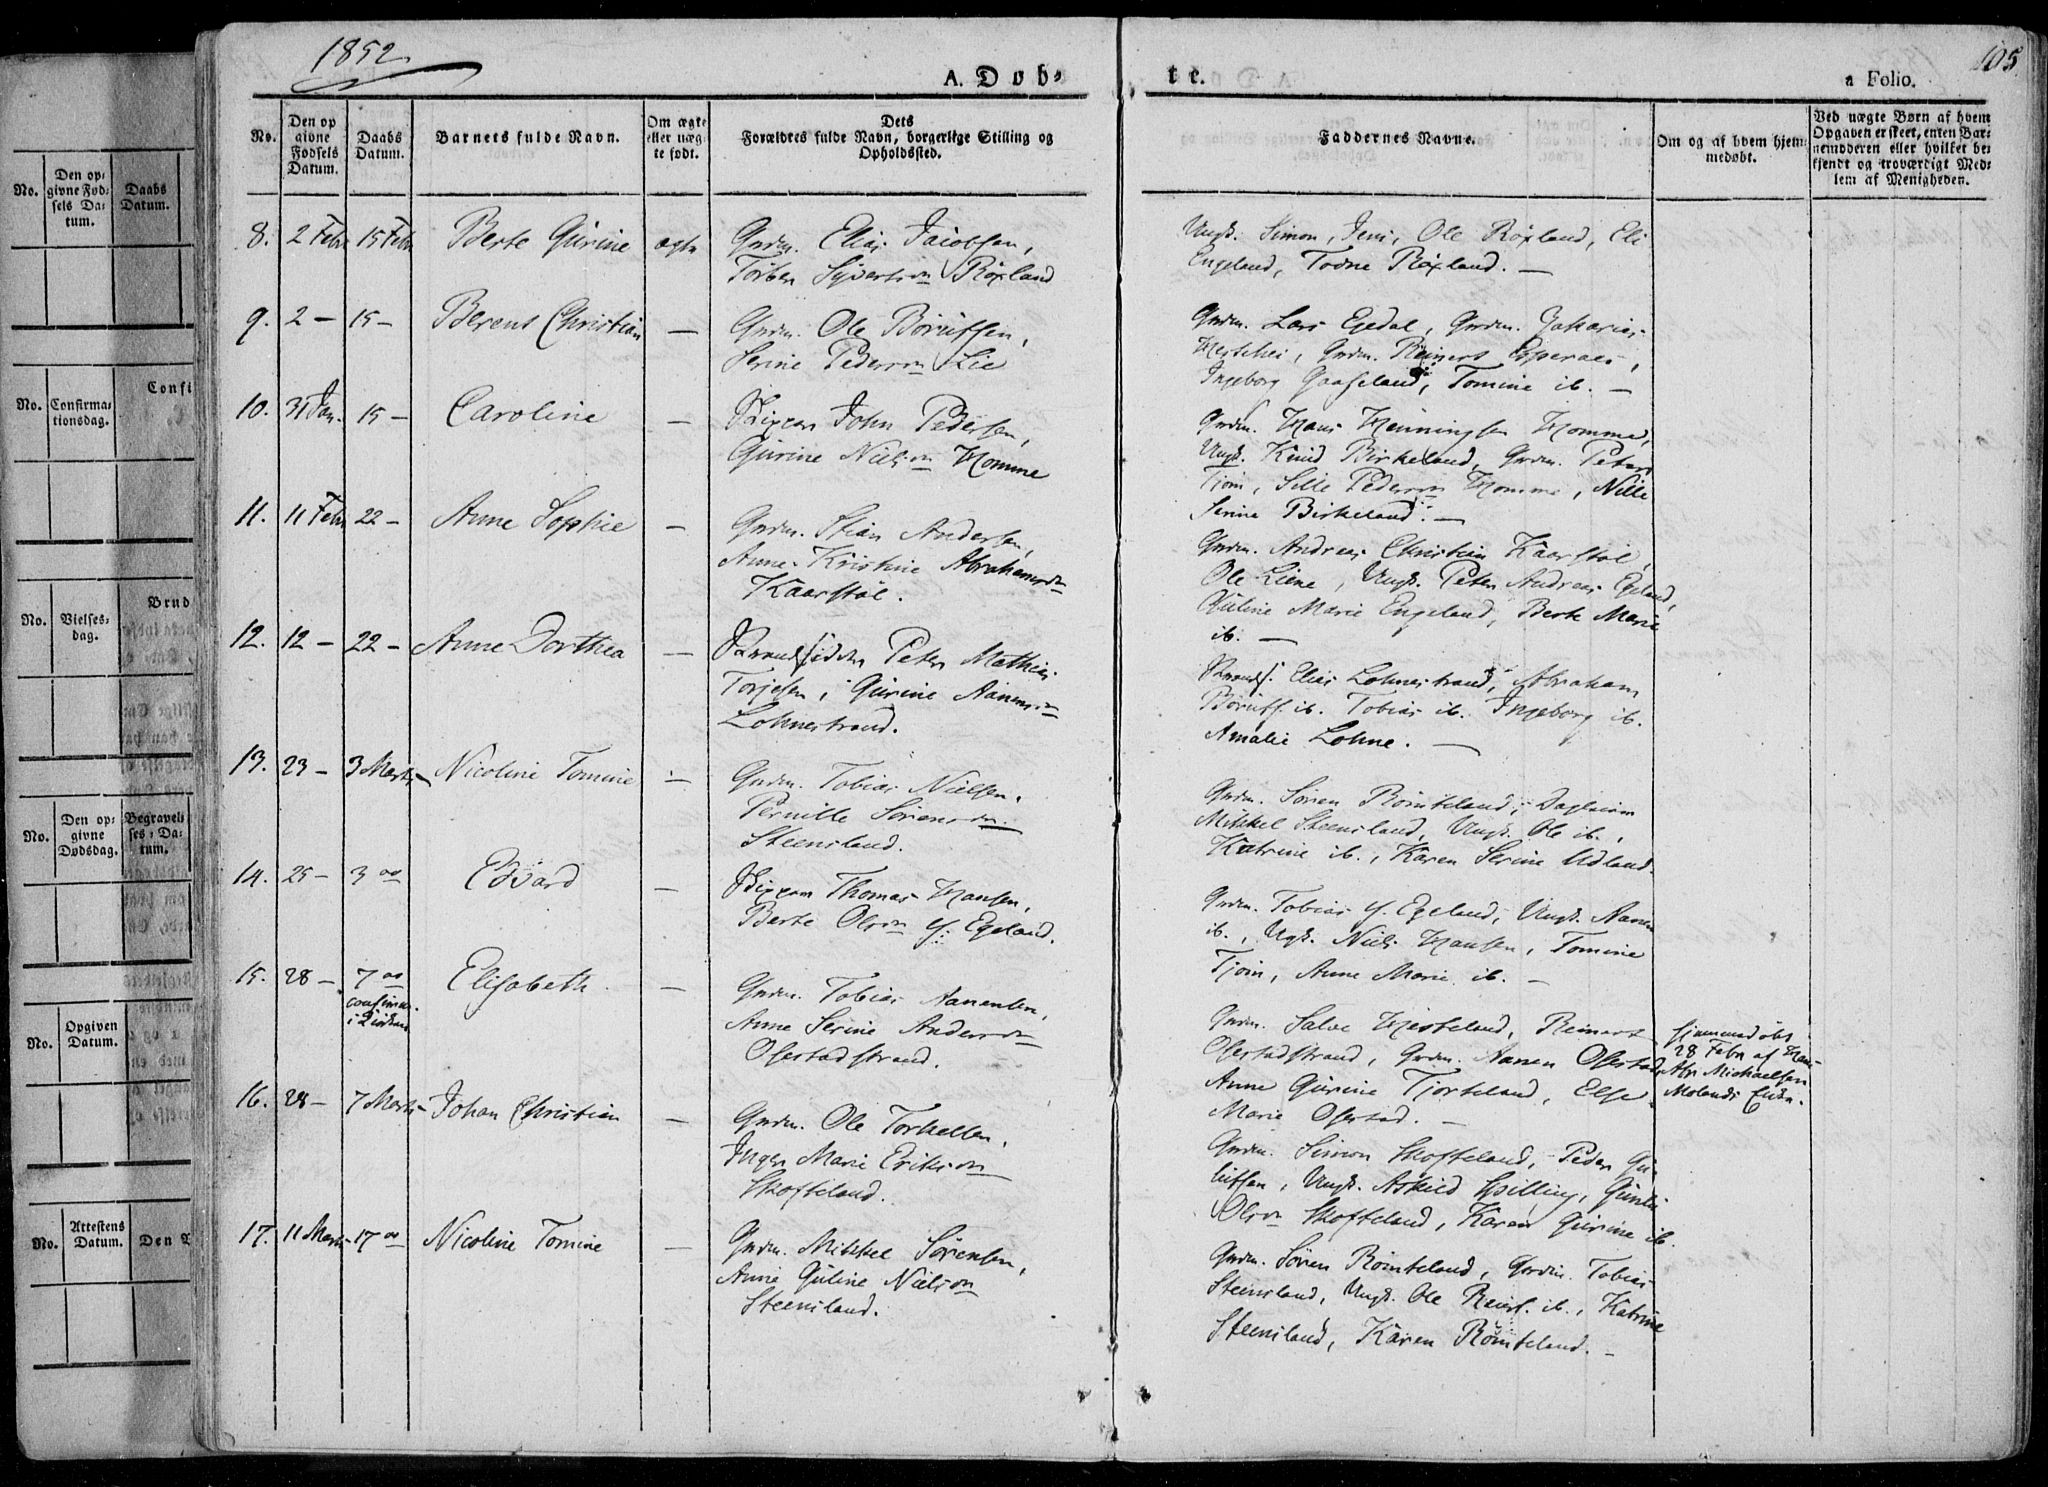 1852.
105.
A. Døb-
te.
a Folio.
No.
Den op
givne
Fødsels
Datum.
Daabs
Datum.
Barnets fulde Navn.
Om ægte
eller uæg-
te født.
Dets
Forældres fulde Navn, borgerlige Stilling og
Opholdssted.
Faddernes Navne.
Om og af hvem hjem-
medøbt.
Ved uægte Børn af hvem
Opgaven er skeet, enten Bar-
nemoderen eller hvilket be-
kjendt og troværdigt Med-
lem af Menigheden.
8. 2 Febr 15 Febr Berte Gurine ægte
Grdm. Elias Jacobsen,
Torber Syvertsdn Røxland
Ungk. Simon, Jens, Ole Røxland, Eli
Engeland, Todne Røxland. —
9. 2 — 15 — Berent Christian —
Grdm. Ole Børufsen,
Serine Pedersdn Lie
Grdm. Lars Egedal, Grdm. Zakarias
Grdm. Reinert
Ingeborg Gaaseland, Tomine ib. —
10. 31 Jan. 15 — Caroline —
John Pedersen,
Gurine Nielsdn Homme
Grdm. Hans Henningsen Homme,
Ungk. Knud Birkeland, Grdm. Peter
Tjom, Sille Pedersdn Homme, Nille
Serine Birkeland. —
11. 11 Febr 22 — Anne Sophie —
Grdm. Stian Andersen,
Anne Kristine Abrahamsdn
Kaarstøl.
Grdm. Andreas Christian Kaarstøl,
Ole Liene, Ungk. Peter Andreas Egeland,
Guline Marie Engeland, Berte Marie
ib. —
12. 12 — 22 — Anne Dorthea —
Strandsidder Peter Mathias
Torjesen, Gurine Aanensdn
Lohnestrand.
Strands. Elias Lohnestrand, Abraham
Børufs. ib. Tobias ib. Ingeborg ib.
Amalie Lohne. —
13. 23 — 3 Marts Nicoline Tomine —
Grdm. Tobias Nielsen,
Pernille Sørensdn
Steensland.
Grdm. Søren Rømteland,
Mikkel Steensland, Ungk. Ole ib.,
Katrine ib., Karen Serine Udland.
14. 25 — 3 do Edvard —
Thomas Hansen,
Berte Olsdn y. Egeland.
Grdm. Tobias y. Egeland, Ungk. Aanen
ib., Ugk. Niels Hansen, Tomine
Tjom, Anne Marie ib. —
15. 28 — 7 do Elisabeth. —
confirm.
i Kirken
Grdm. Tobias Aanensen,
Anne Serine Andersdn
Ofestadstrand.
Grdm. Salve Hesteland, Reinert
Ofestadstrand, Grdm. Aanen Ofestad,
Anne Gurine Tjorteland, Else
Marie Ofestad. —
hjemmedøbt
28 Febr af Hans
Abr Michaelsen
16. 28 — 7 Marts Johan Christian —
Grdm. Ole Torkelsen,
Inger Marie Eriksdn
Skofteland.
Grdm. Simon Skofteland, Peder Gu-
lufsen, Ungk. Askild Spilling, Gunild
Olsdn Skofteland, Karen Gurine ib.
17. 11 Marts 17 do Nicoline Tomine —
Grdm. Mikkel Sørensen,
Anne Guline Nielsdn
Steensland.
Grdm. Søren Rømteland, Grdm. Tobias
Steensland, Ungk. Ole Reiers. ib., Katrine
Steensland, Karen Rømteland. —
No.
Den op-
givne Fød-
sels Da-
tum.
Daabs
Datum.
No.
Confirma-
tionsdag.
Confi
No.
Vielses-
dag.
Brud
No.
Den op-
givne
Dødsdag.
Begravel-
ses-Da-
tum.
No.
Opgiven
Datum.
No.
Attestens
Datum.